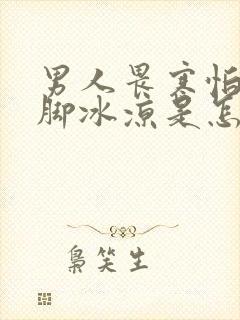 男人畏寒怕
脚冰凉是怎
枭笑生